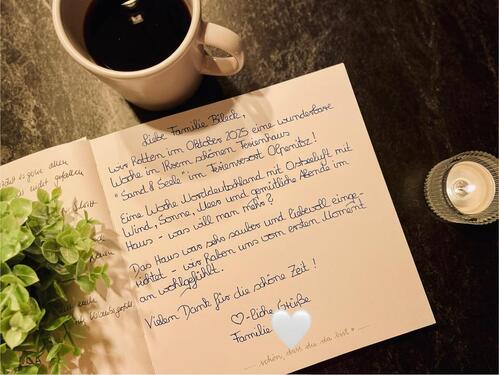 Liebe Familie Bileck,
wir hatten im Oktober 2025 eine wunderbare
Woche in Ihrem schönen Ferienhaus
"Sand & Seele" im Ferienresort Olpenitz!
Eine Woche Norddeutschland mit Ostseeluft mit
Wind, Sonne, Meer und gemütliche Abende im
Haus - was will man mehr?
Das Haus war sehr sauber und liebevoll einge-
richtet - wir haben uns vom ersten Moment
an wohlgefühlt.
Vielen Dank für die schöne Zeit!
♡-liche Grüße
Familie
schön, dass du da bist